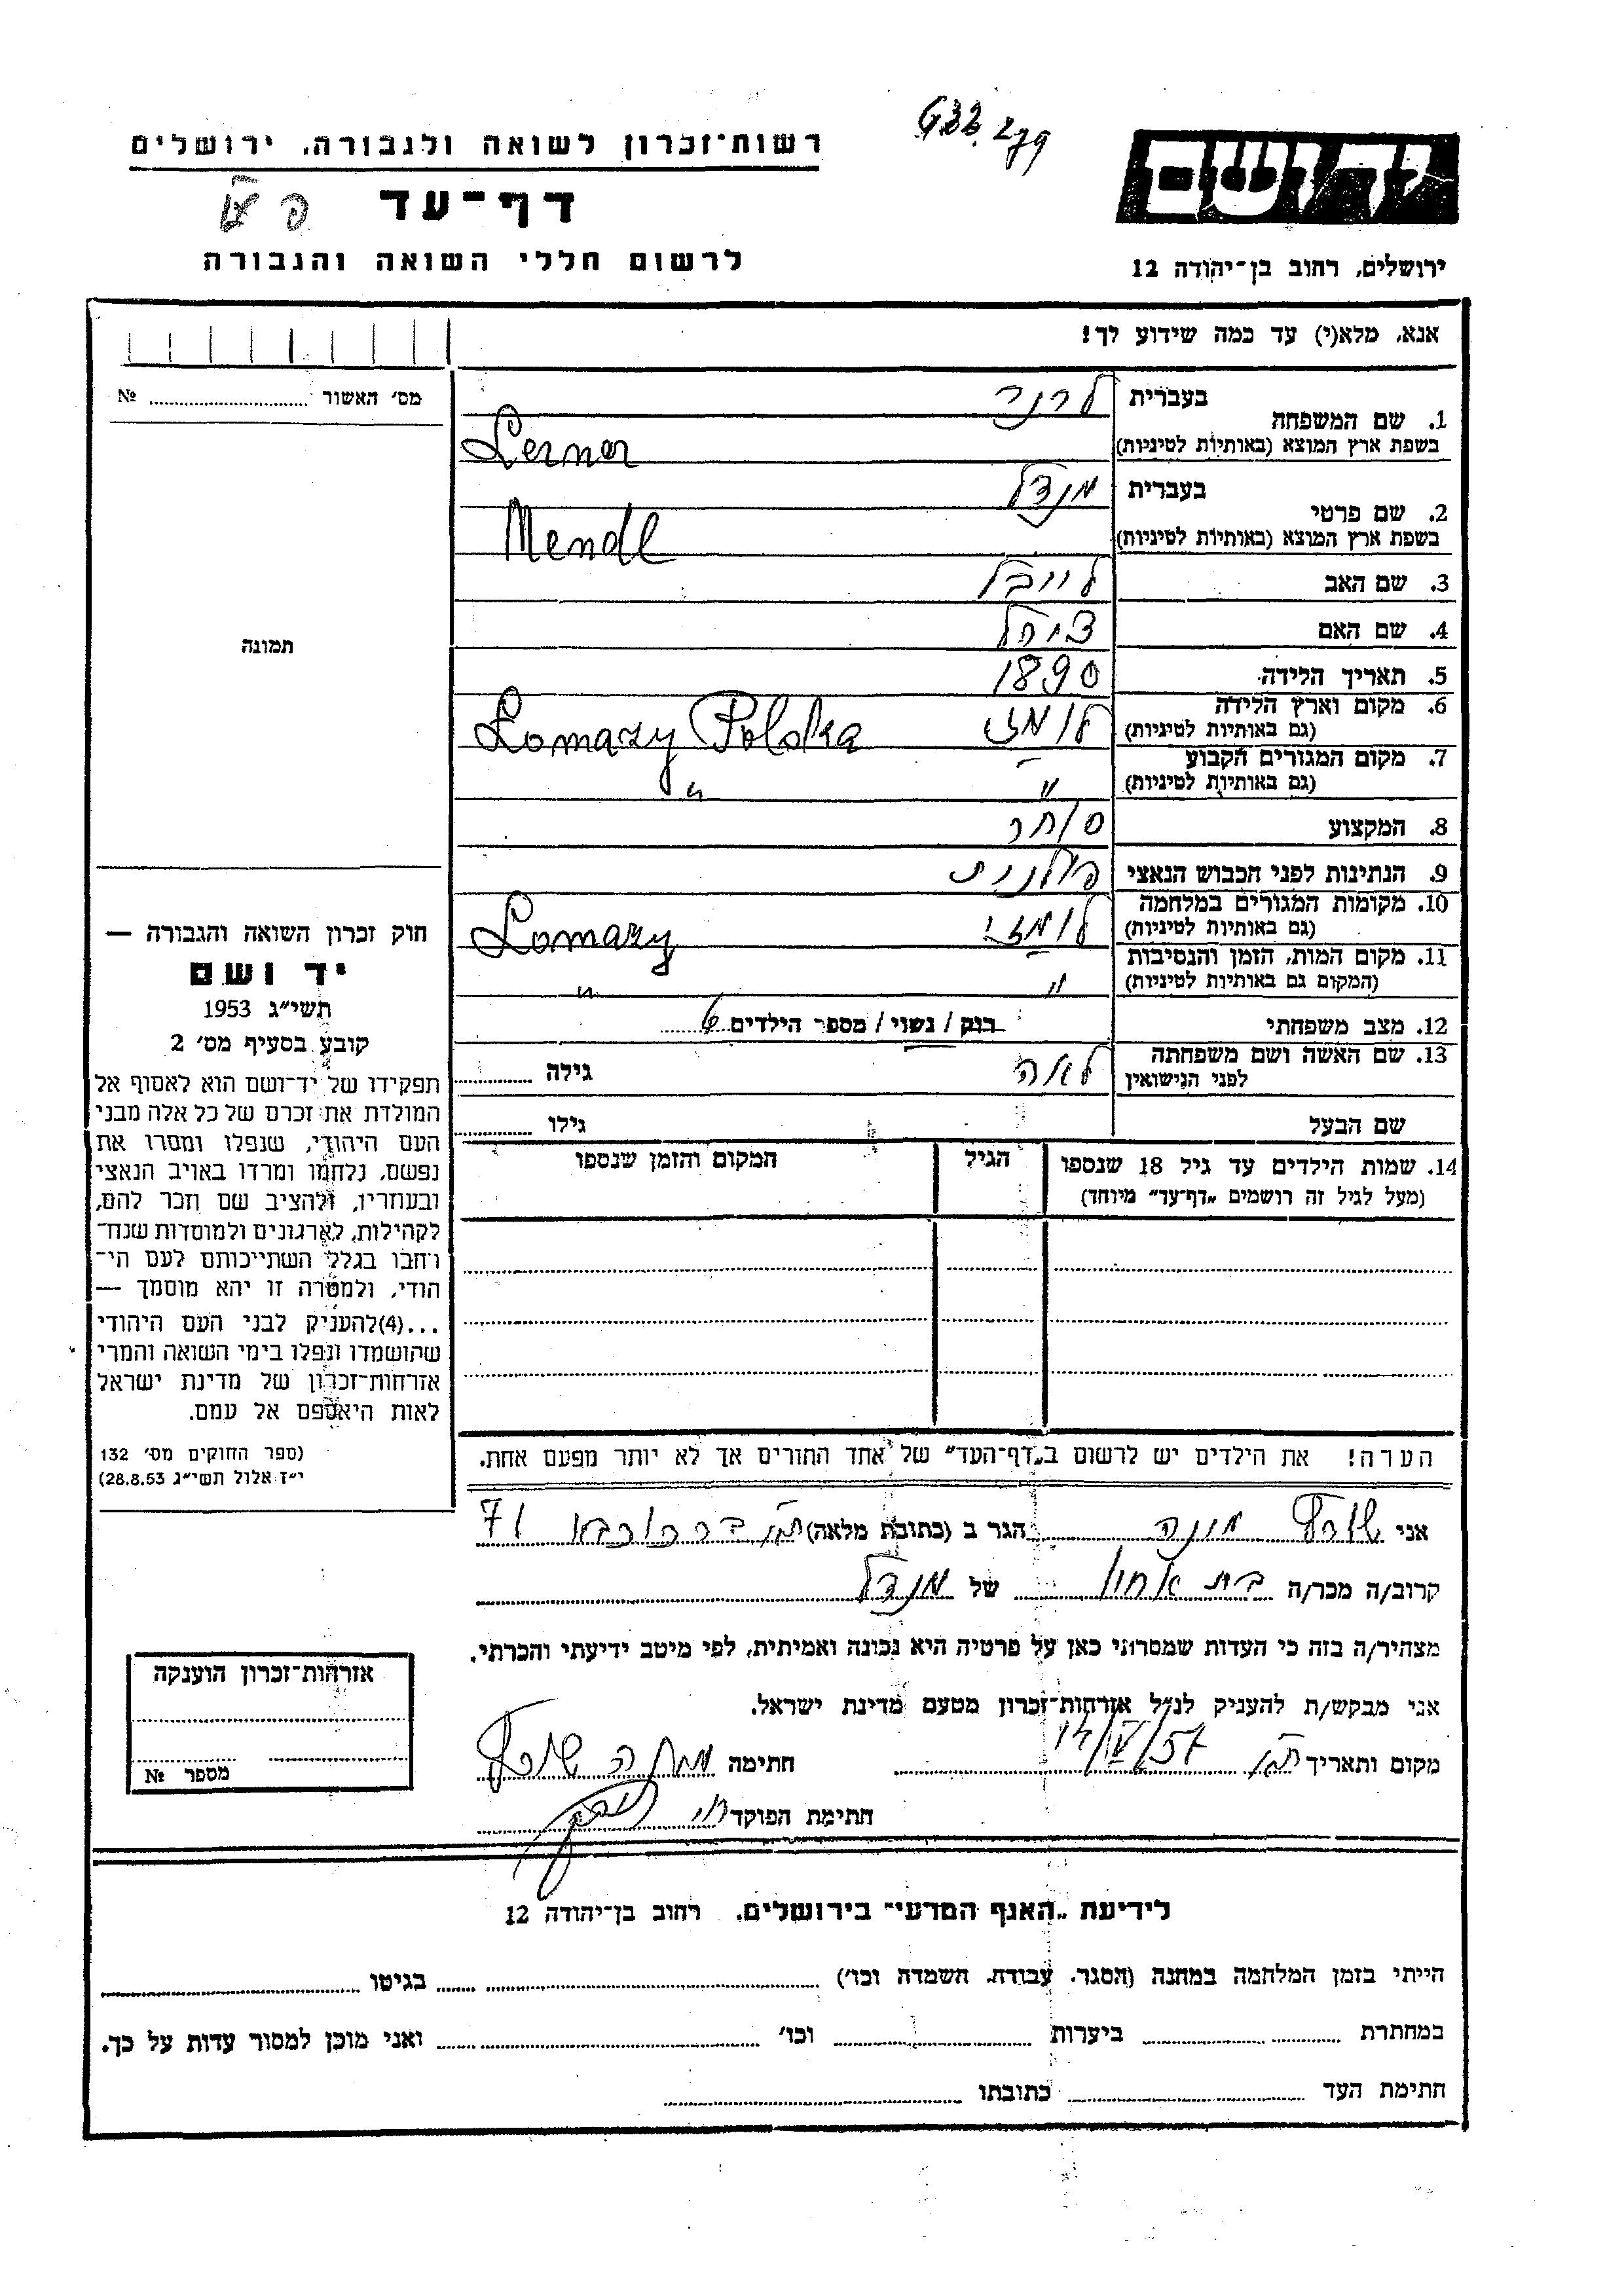 רשות־זכרון לשואה ולגבורה, ירושלים
דף־עד
לרשום חללי השואה והגבורה
יד ושם
ירושלים, רחוב בן־יהודה 12
אנא, מלא(י) עד כמה שידוע לך!
מס׳ האשור № 
1. שם המשפחה
בעברית לרנר
בשפת ארץ המוצא (באותיות לטיניות) Lerner
2. שם פרטי
בעברית מנדל
בשפת ארץ המוצא (באותיות לטיניות) Mendl
3. שם האב לייבל
4. שם האם
5. תאריך הלידה 1890
6. מקום וארץ הלידה
(גם באותיות לטיניות) לומזי Lomazy Polska
7. מקום המגורים הקבוע
(גם באותיות לטיניות) " "
8. המקצוע סוחר
9. הנתינות לפני הכבוש הנאצי פולנית
10. מקומות המגורים במלחמה
(גם באותיות לטיניות) לומזי Lomazy
11. מקום המות, הזמן והנסיבות
(המקום גם באותיות לטיניות) " "
12. מצב משפחתי רוק / נשוי / מספר הילדים 6
13. שם האשה ושם משפחתה
לפני הנישואין לאה גילה
שם הבעל גילו
14. שמות הילדים עד גיל 18 שנספו הגיל המקום והזמן שנספו
(מעל לגיל זה רושמים „דף־עד״ מיוחד)
הערה! את הילדים יש לרשום ב„דף־העד״ של אחד ההורים אך לא יותר מפעם אחת.
תמונה
חוק זכרון השואה והגבורה —
יד ושם
תשי״ג 1953
קובע בסעיף מס׳ 2
תפקידו של יד־ושם הוא לאסוף אל
המולדת את זכרם של כל אלה מבני
העם היהודי, שנפלו ומסרו את
נפשם, נלחמו ומרדו באויב הנאצי
ובעוזריו, ולהציב שם וזכר להם,
לקהילות, לארגונים ולמוסדות שנח־
רחבו בגלל השתייכותם לעם הי־
הודי, ולמטרה זו יהא מוסמך —
...(4)להעניק לבני העם היהודי
שהושמדו ונפלו בימי השואה והמרי
אזרחות־זכרון של מדינת ישראל
לאות היאספם אל עמם.
(ספר החוקים מס׳ 132
י״ז אלול תשי״ג 28.8.53)
אני הגר ב (כתובת מלאה) 71
קרוב/ה מכר/ה בת אחון של מנדל
מצהיר/ה בזה כי העדות שמסרתי כאן על פרטיה היא נכונה ואמיתית, לפי מיטב ידיעתי והכרתי.
אני מבקש/ת להעניק לנ״ל אזרחות־זכרון מטעם מדינת ישראל.
מקום ותאריך חתימה
חתימת הפוקד
אזרחות־זכרון הוענקה
מספר №
לידיעת „האגף המדעי״ בירושלים, רחוב בן־יהודה 12
הייתי בזמן המלחמה במחנה (הסגר, עבודה, השמדה וכו׳) בגיטו
במחתרת ביערות וכו׳ ואני מוכן למסור עדות על כך.
חתימת העד כתובתו